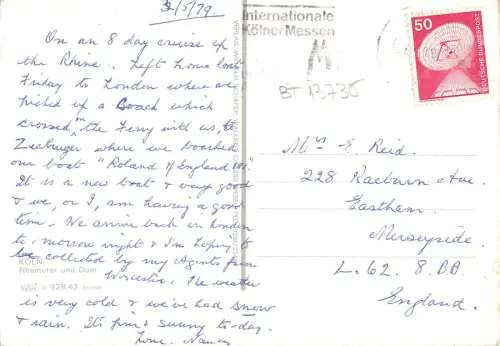 2/5/79
On an 8 day cruise up
the Rhine. Left home last
Friday to London where we
picked up a Coach which
crossed on the Ferry with us, to
Zeebruger where we boarded
our boat "Roland of England".
It is a new boat & very good
& we, or I, am having a good
time. We arrive back in London
to-morrow night & I'm hoping to
be collected by my Agents from
Worcester. The weather
is very cold & we've had snow
& rain. It's fine & sunny to-day.
Love. Nancy
KÖLN
Rheinufer und Dom
W 928.42
Internationale
Kölner Messen
BT 13735
50
DEUTSCHE BUNDESPOST
Mrs E. Reid.
228 Raeburn Ave.
Eastham.
Merseyside.
L. 62. 8. BB.
England.